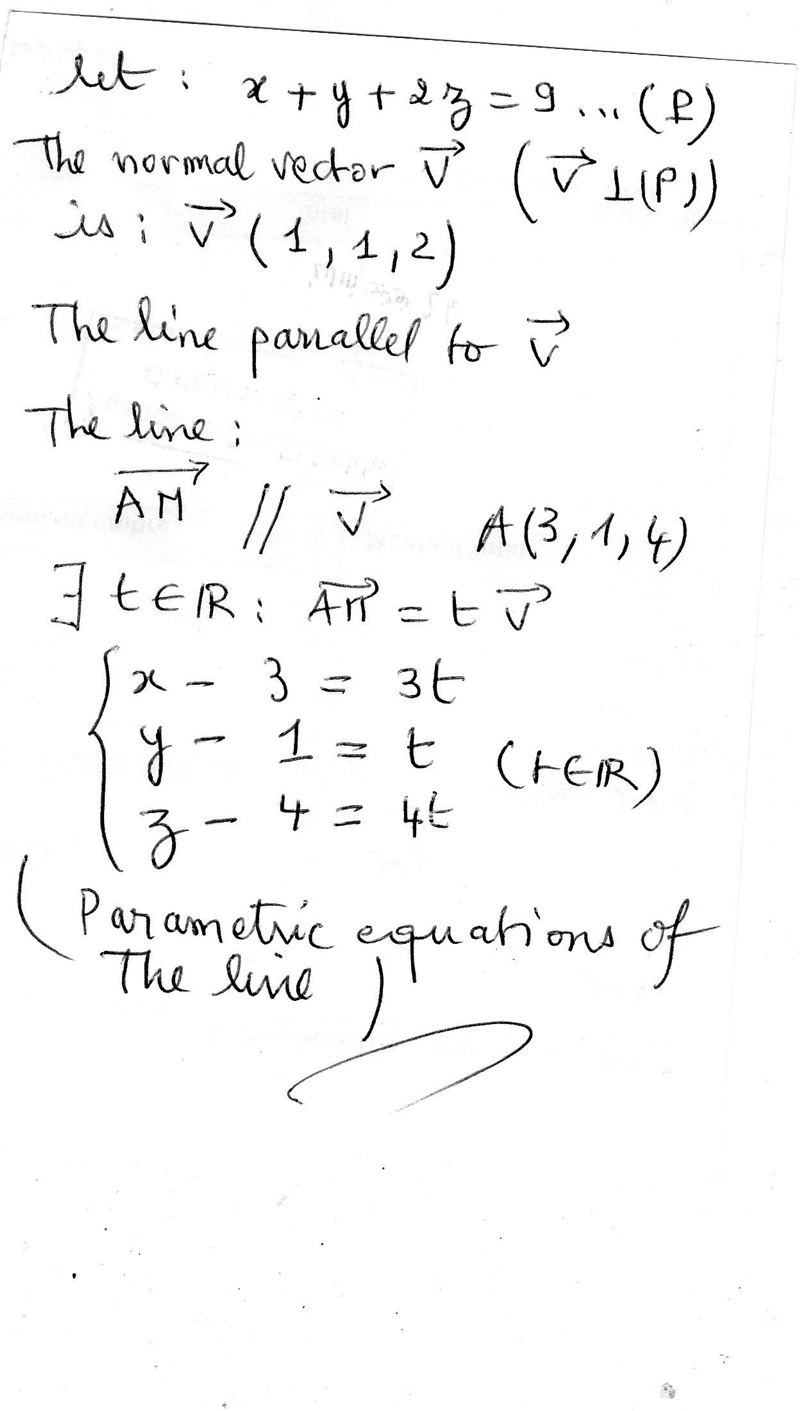 let : x + y + 2z = 9 ... (P)
The normal vector V⃗ (V⃗ ⊥ (P))
is : V⃗ (1, 1, 2)
The line parrallel to V⃗
The line :
AM⃗ // V⃗ A(3, 1, 4)
∃ t ∈ ℝ : AM⃗ = t V⃗
{ x - 3 = 3t
y - 1 = t (t ∈ ℝ)
z - 4 = 4t
( Parametric equations of
The line )